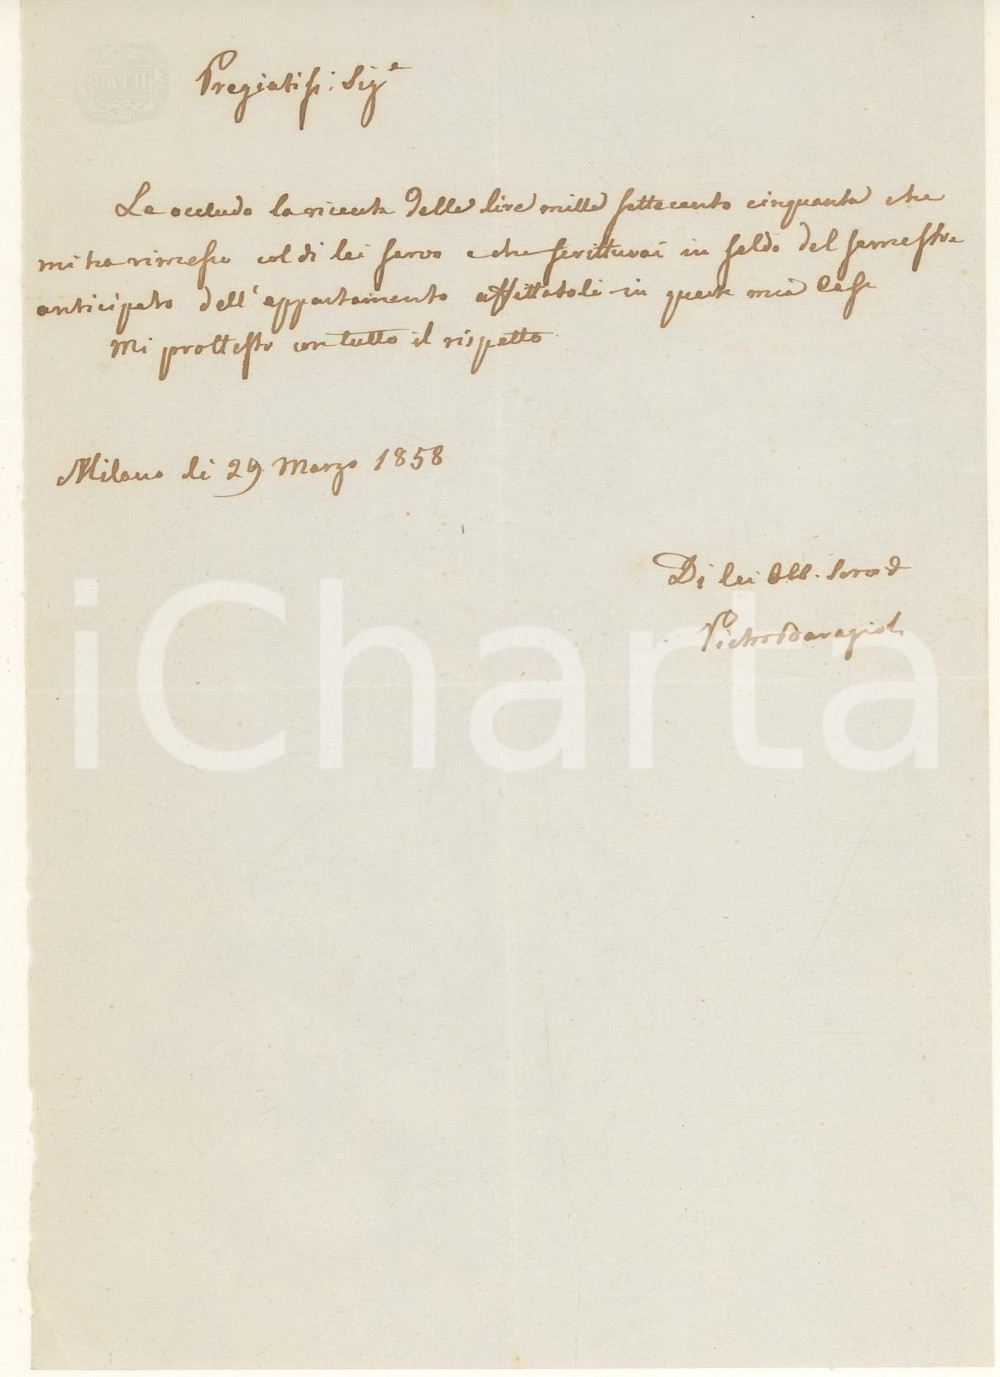 Pregiatiss: Sig.e
Le accludo la ricevuta delle lire mille settecento cinquanta che
mi ha rimesso col di lei servo e che scritturai in saldo del semestre
anticipato dell'appartamento affittatoli in questa mia Casa
Mi prottesto con tutto il rispetto
Milano li 29 Marzo 1858
Di lei Obb. Serv
Pietro
iCharta